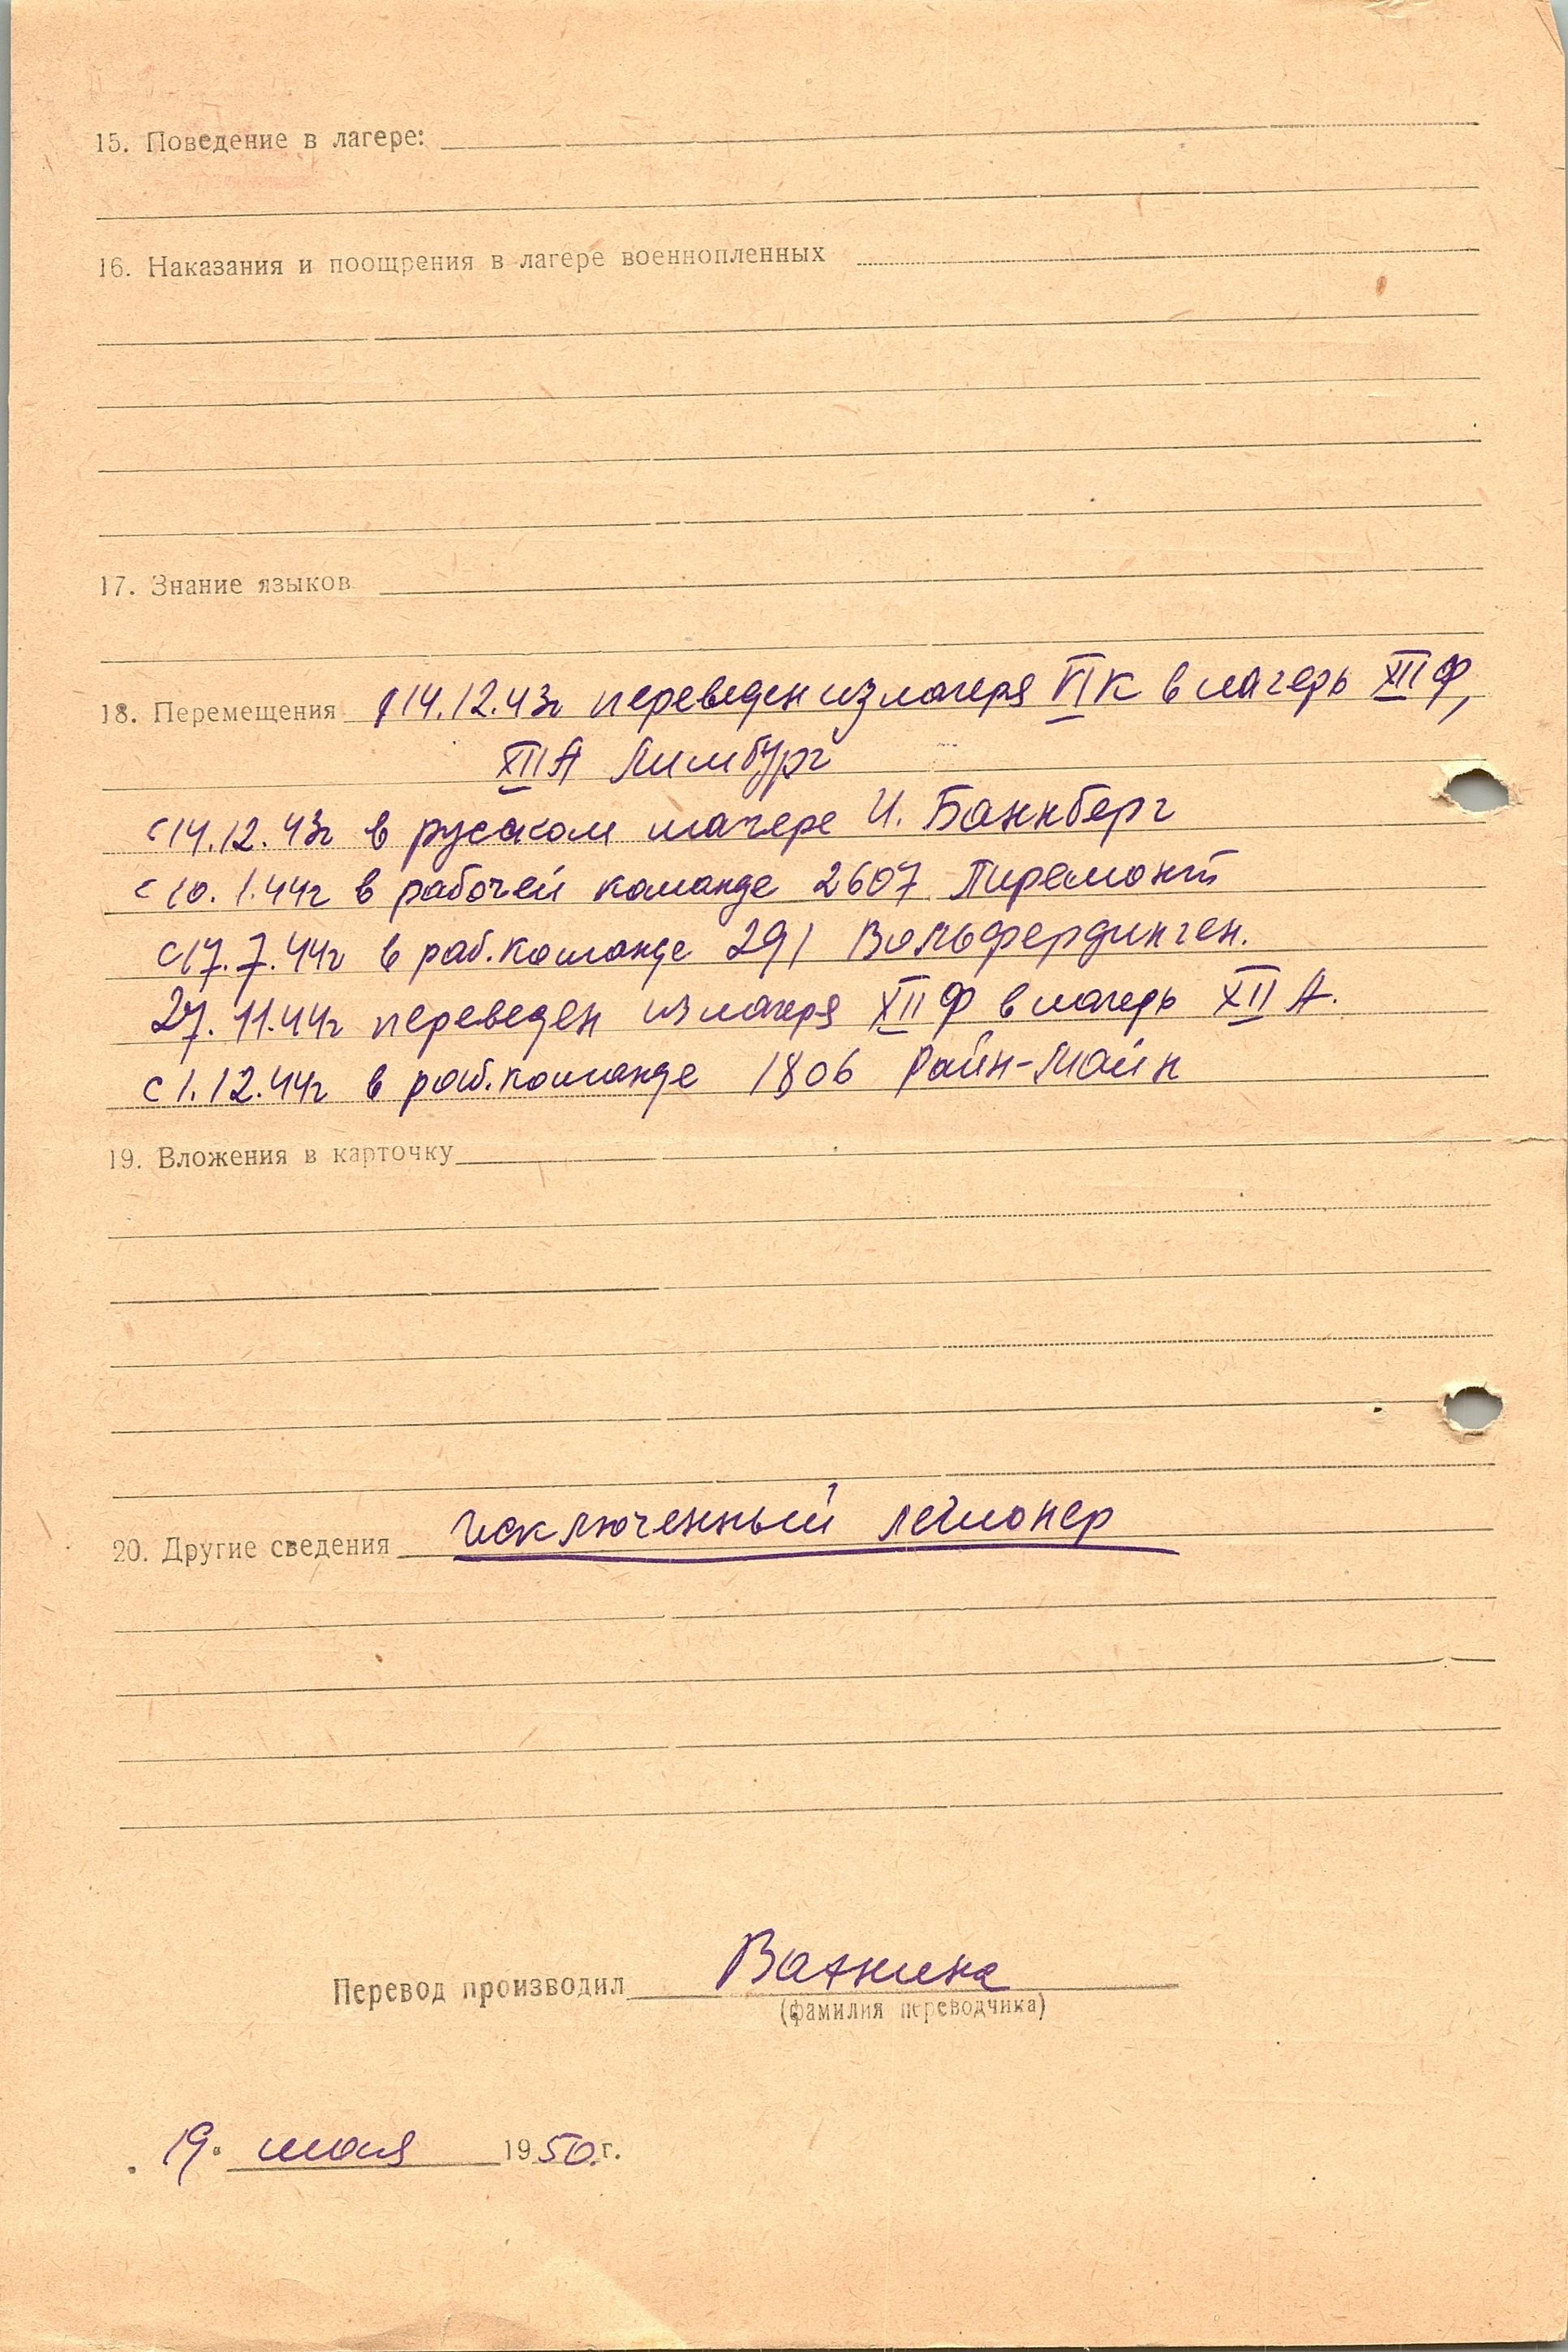 15. Поведение в лагере:
16. Наказания и поощрения в лагере военнопленных
17. Знание языков
18. Перемещения 14.12.43г переведен из лагеря VI К в лагерь XII Ф,
XII А Лимбург
с 14.12.43г в русском лагере И. Баннберг
с 10.1.44г в рабочей команде 2607 Пиремонт
с 17.7.44г в раб. команде 291 Вольфердинген.
27.11.44г переведен из лагеря XII Ф в лагерь XII А.
с 1.12.44г в раб. команде 1806 Райн-Майн
19. Вложения в карточку
20. Другие сведения исключенный легионер
Перевод производил
(фамилия переводчика)
19. мая 1950.г.